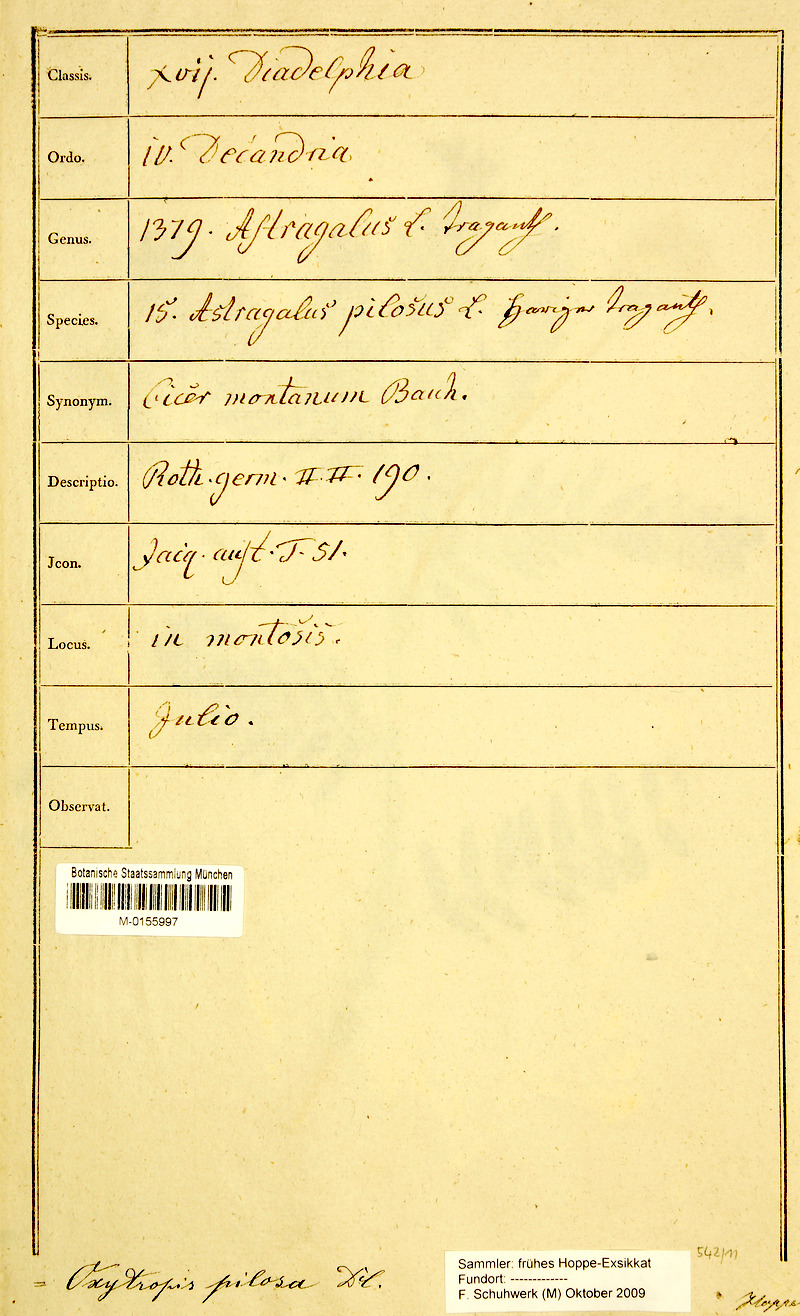 Classis. xvij. Diadelphia
Ordo. IV. Decandria
Genus. 1379. Astragalus L. Traganth.
Species. 15. Astragalus pilosus L. Hariger Traganth.
Synonym. Cicer montanum Bauh.
Descriptio. Roth. germ. II. II. 190.
Jcon. Jacq. aust. T. 51.
Locus. in montosis.
Tempus. Julio.
Observat.
Botanische Staatssammlung München
M-0155997
= Oxytropis pilosa DC.
Sammler: frühes Hoppe-Exsikkat
Fundort: -------------
F. Schuhwerk (M) Oktober 2009
542/11
Hoppe